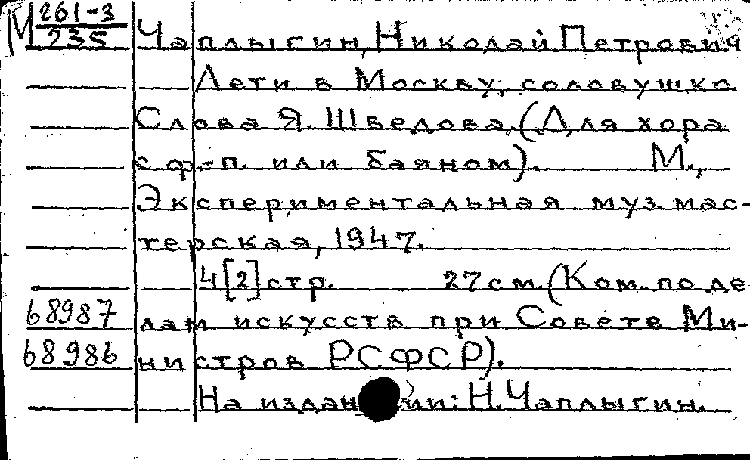 М 261-3
235
Чаплыгин, Николай Петрович
Лети в Москву, соловушко.
Слова Я. Шведова. (Для хора
с ф.-п. или баяном). М.,
Экспериментальная муз. мас-
терская, 1947.
4 [2] стр. 27 см. (Ком. по де-
68987 лам искусств при Совете Ми-
68986 нистров РСФСР).
На издан ии: Н. Чаплыгин.